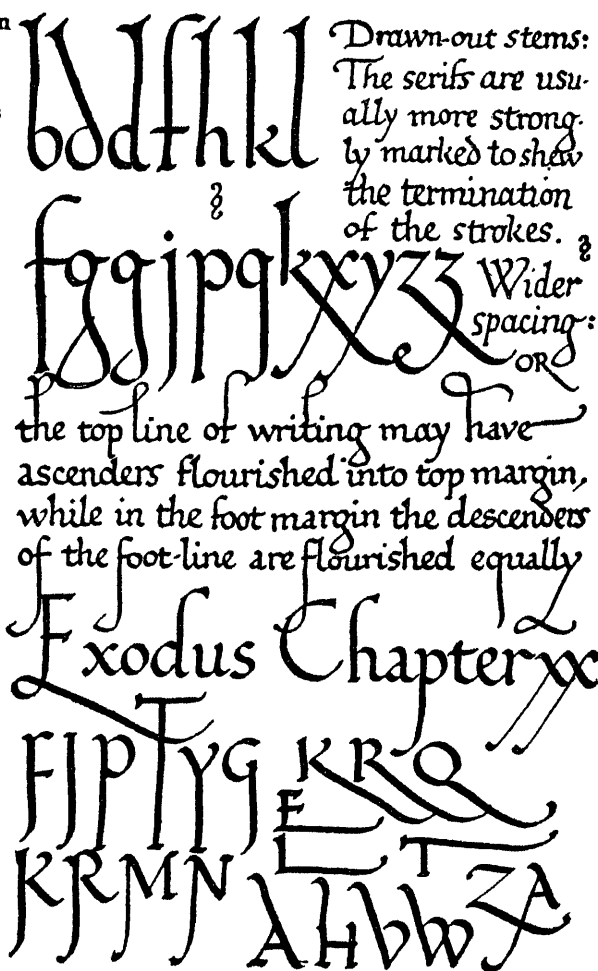 bddfhkl
Drawn-out stems:
The serifs are usu-
ally more strong-
ly marked to shew
the termination
of the strokes.
fggjpqkxyzz
Wider
spacing:
OR
the top line of writing may have
ascenders flourished into top margin,
while in the foot margin the descenders
of the foot-line are flourished equally
Exodus Chapter xx
FJPTYG KRQ
E
L T
KRMN
AHVWZA